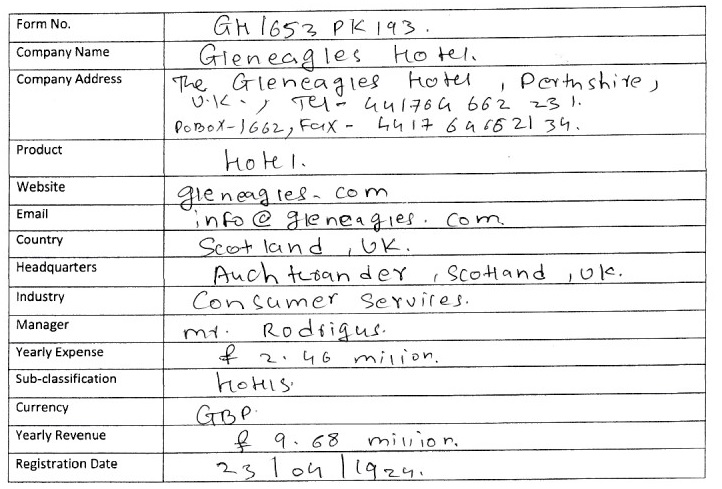 Form No. GH1653PK193.
Company Name Gleneagles Hotel.
Company Address The Gleneagles Hotel, Perthshire,
U.K., Tel- 441764 662 231.
POBOX-1662, Fax- 441764662134.
Product Hotel.
Website gleneagles.com
Email info@gleneagles.com.
Country Scotland, UK.
Headquarters Auchterander, Scotland, UK.
Industry Consumer Services.
Manager mr. Rodrigus.
Yearly Expense £ 2.46 million.
Sub-classification Hotels.
Currency GBP.
Yearly Revenue £ 9.68 million.
Registration Date 23/04/1924.